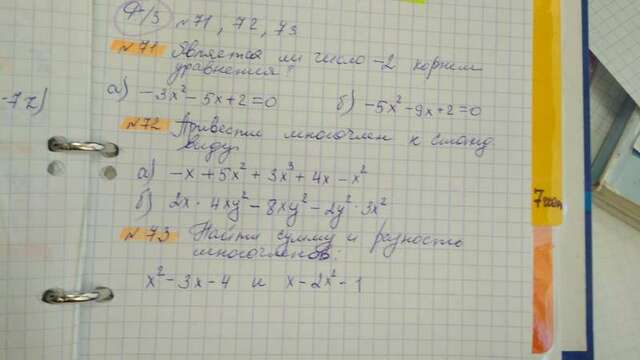 Ф/З №71, 72, 73
№71 Является ли число -2 корнем
уравнения?
а) -3x²-5x+2=0 б) -5x²-9x+2=0
№72 Привести многочлен к станд.
виду
а) -x+5x²+3x³+4x-x²
б) 2x·4xy²-8xy²-2y²·3x²
№73 Найти сумму и разность
многочленов:
x²-3x-4 и x-2x²-1
-7z)